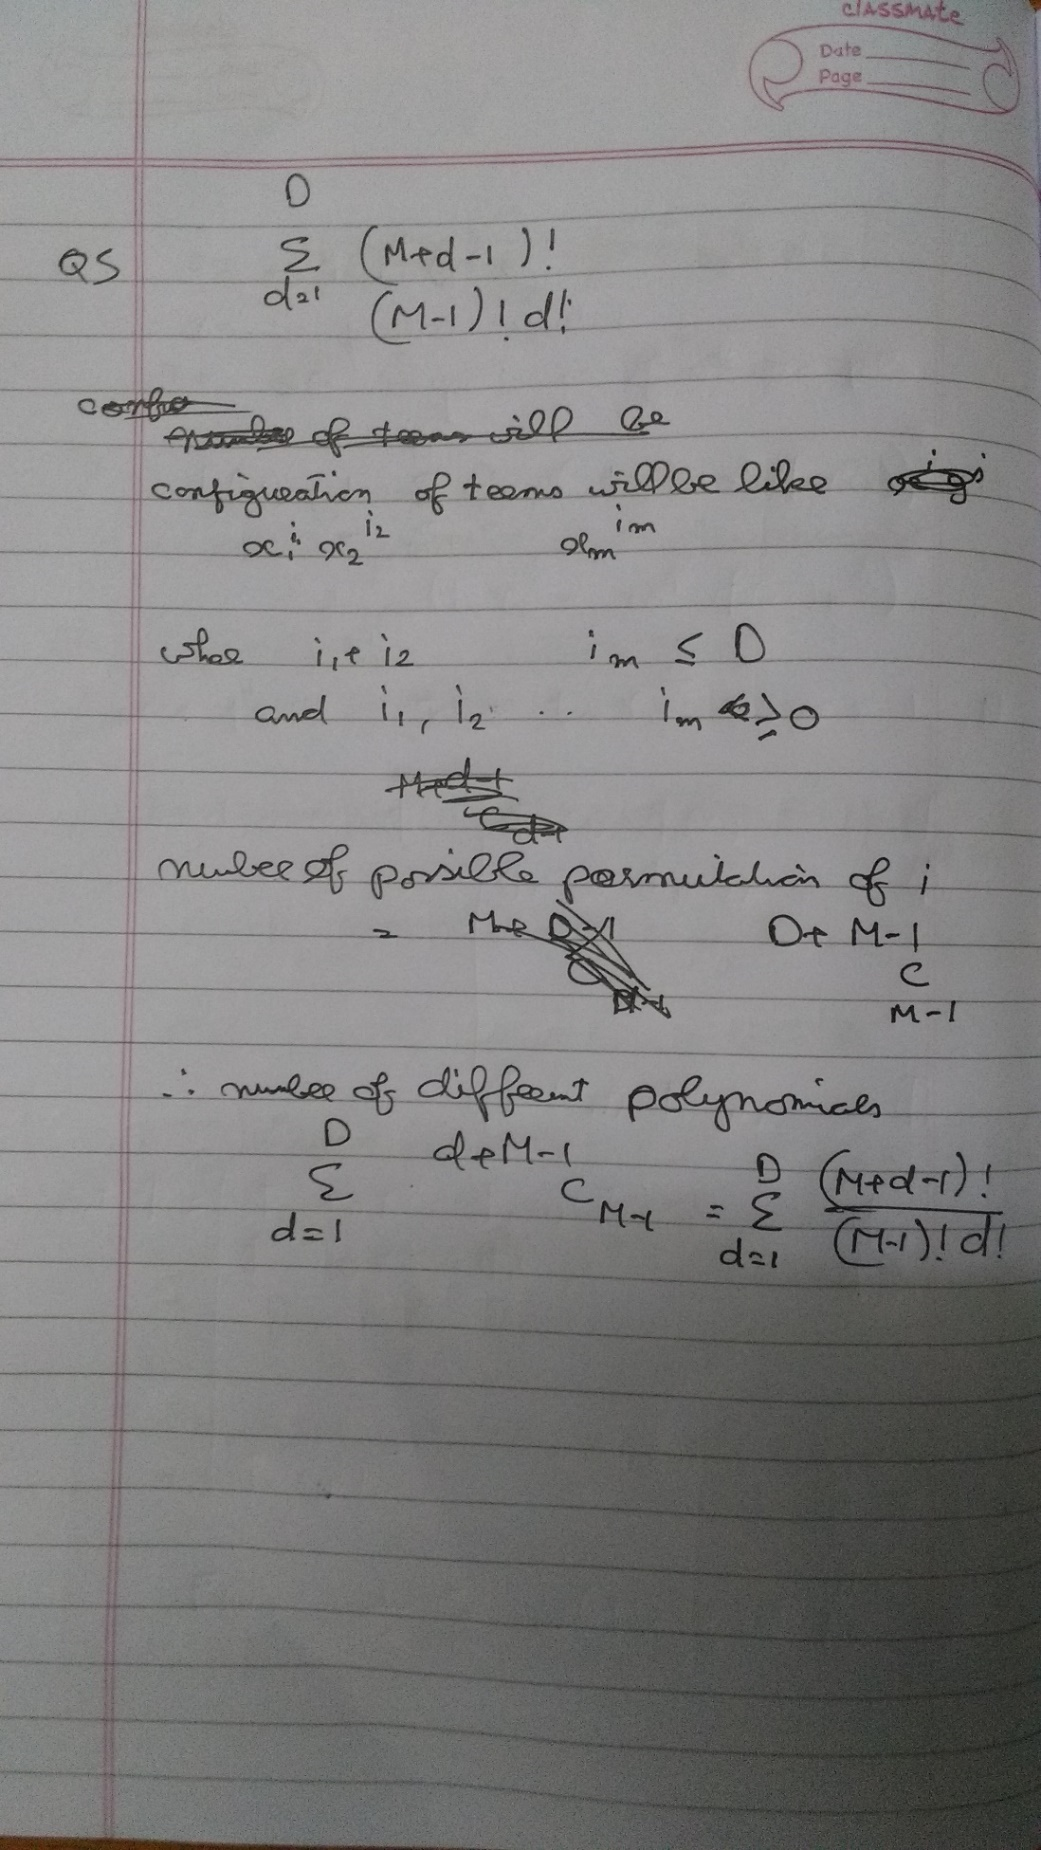 classmate
Date
Page
Q5
D
Σ (M+d-1)!
d=1 (M-1)! d!
configuration of terms will be like
x₁^i₁ x₂^i₂ xm^im
where i₁+ i₂ im ≤ D
and i₁, i₂ .. im ≥ 0
number of possible permutation of i
= D+ M-1
C
M-1
∴ number of different polynomials
D
Σ d+M-1 C M-1 = D Σ (M+d-1)!
d=1 d=1 (M-1)! d!